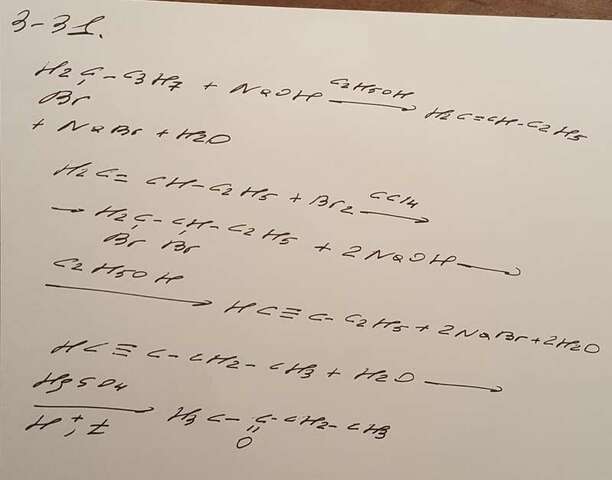 3-31.
H2C-C3H7 + NaOH C2H5OH → H2C=CH-C2H5
Br
+ NaBr + H2O
H2C=CH-C2H5 + Br2 CCl4 →
→ H2C-CH-C2H5 + 2NaOH →
Br Br
C2H5OH → HC≡C-C2H5 + 2NaBr + 2H2O
HC≡C-CH2-CH3 + H2O →
HgSO4
H+, t → H3C-C-CH2-CH3
O